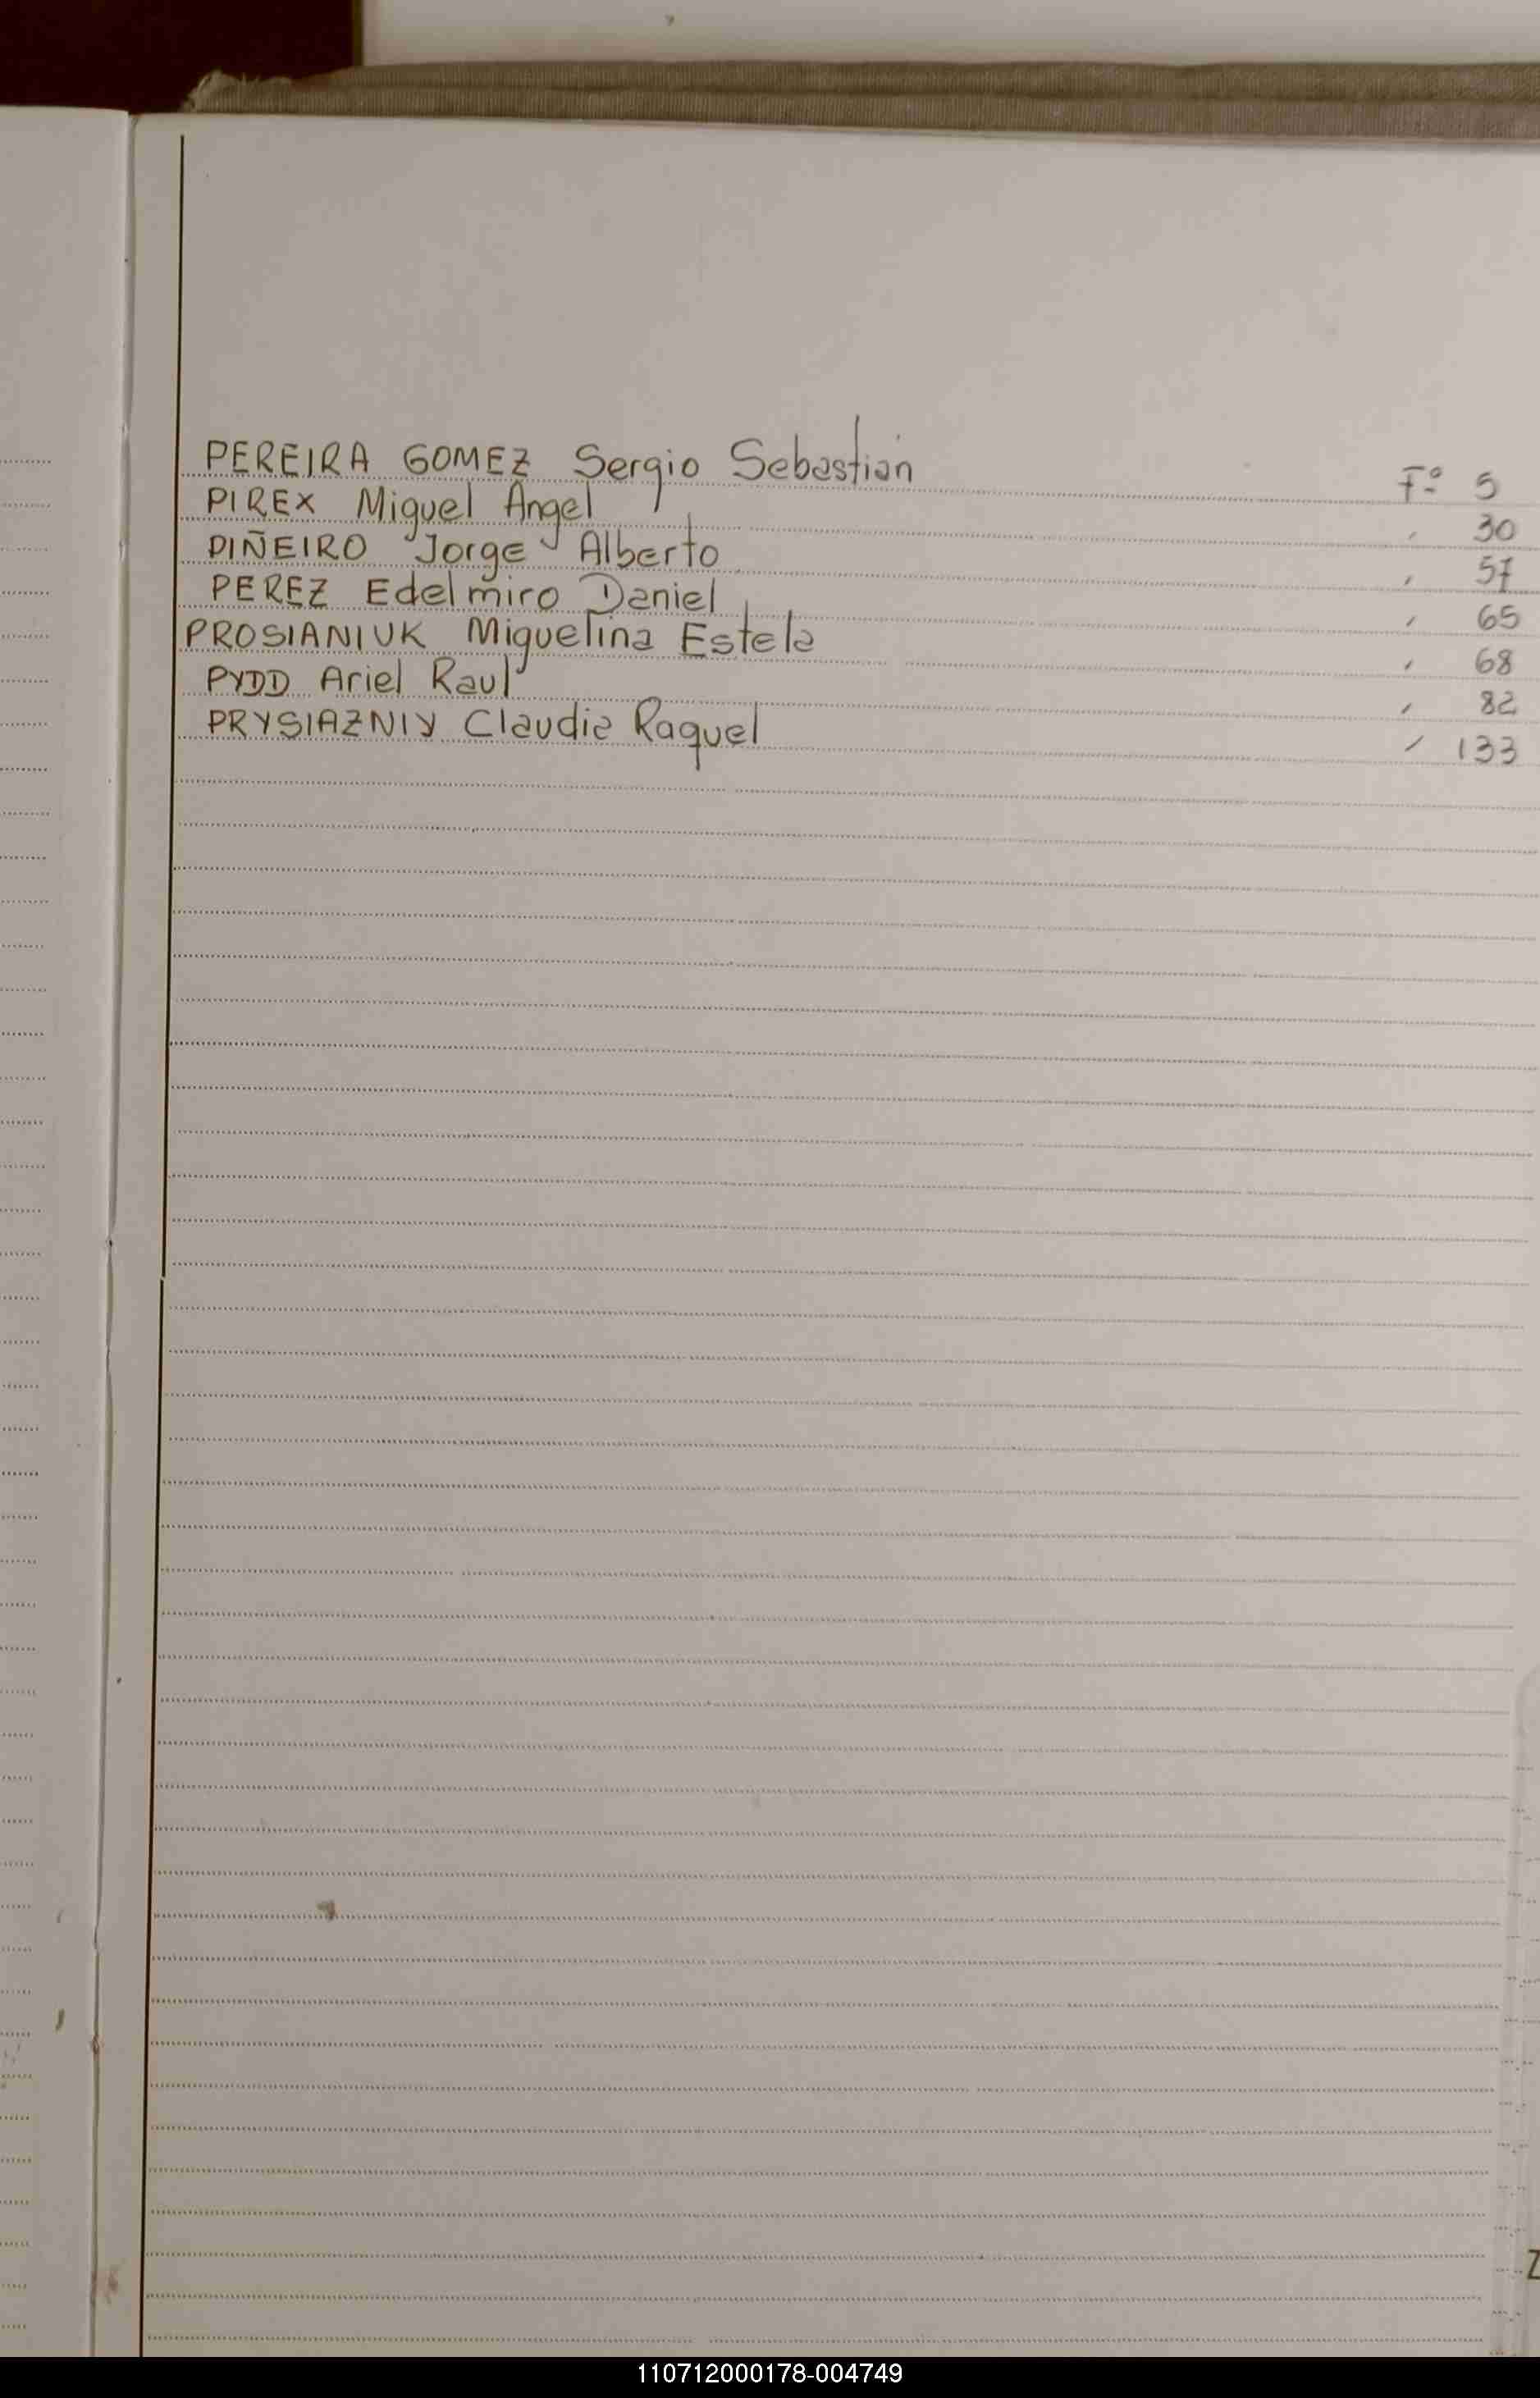 PEREIRA GOMEZ Sergio Sebastián Fº 5
PIREX Miguel Angel " 30
PIÑEIRO Jorge Alberto " 57
PEREZ Edelmiro Daniel " 65
PROSIANIUK Miguelina Estela " 68
PYDD Ariel Raul " 82
PRYSIAZNIY Claudia Raquel " 133
Z
110712000178-004749